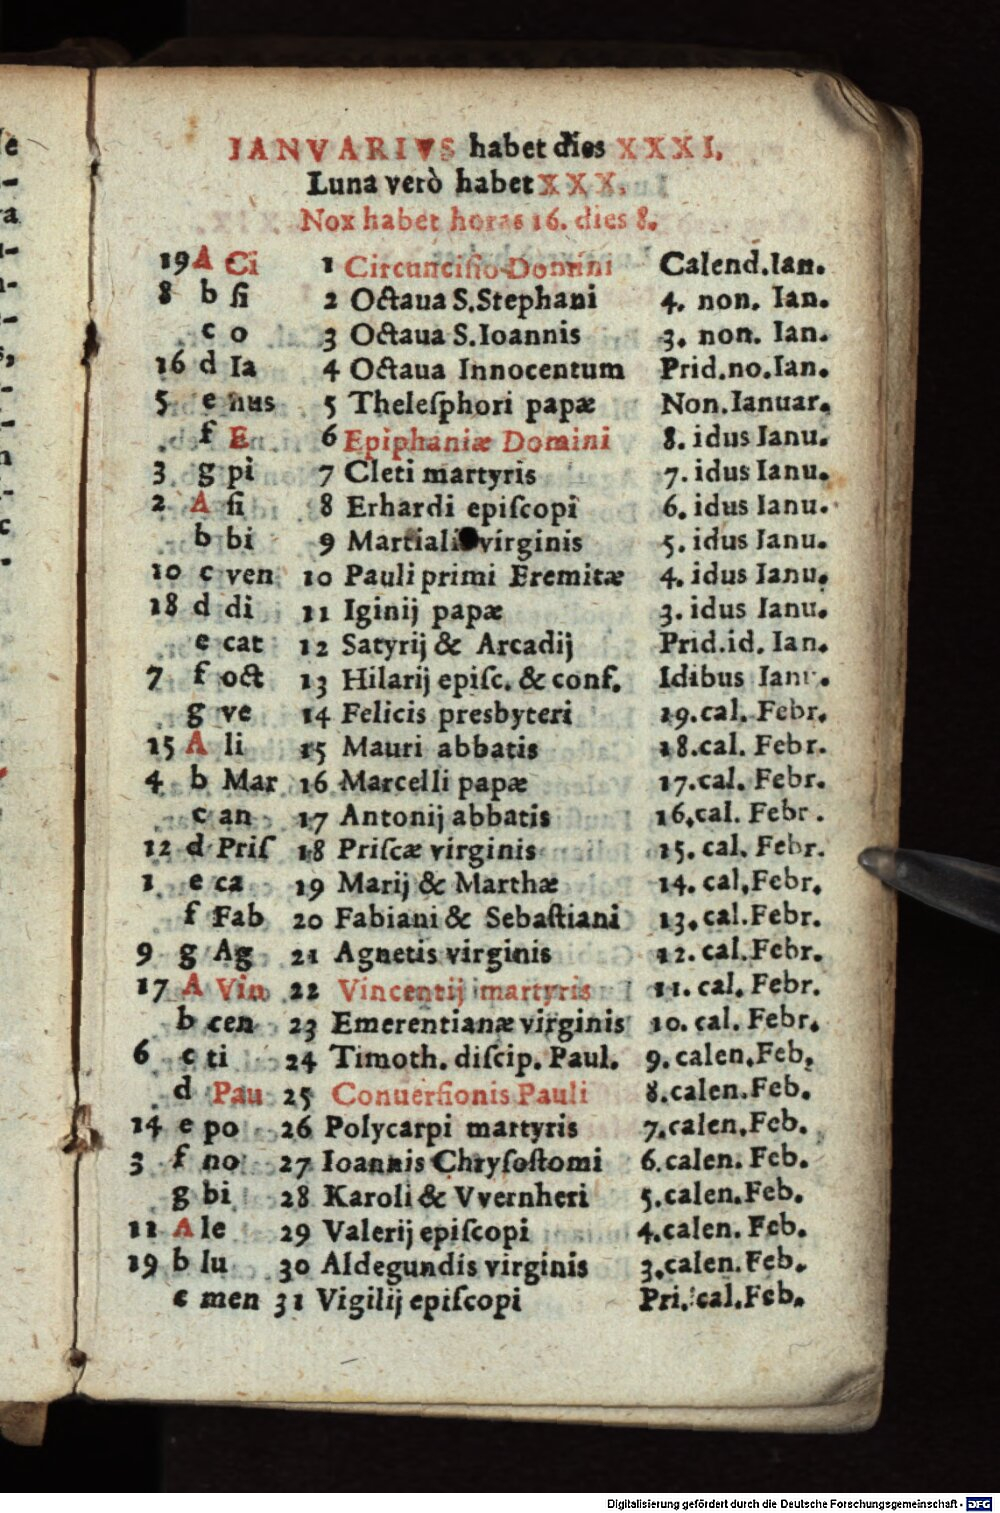 IANVARIVS habet dies XXXI.
Luna verò habet XXX.
Nox habet horas 16. dies 8.
19 A Ci 1 Circumcisio Domini Calend. Ian.
8 b ſi 2 Octaua S. Stephani 4. non. Ian.
c o 3 Octaua S. Ioannis 3. non. Ian.
16 d Ia 4 Octaua Innocentum Prid. no. Ian.
5 e nus 5 Theleſphori papæ Non. Ianuar.
f E 6 Epiphaniæ Domini 8. idus Ianu.
3 g pi 7 Cleti martyris 7. idus Ianu.
2 A ſi 8 Erhardi epiſcopi 6. idus Ianu.
b bi 9 Martialis virginis 5. idus Ianu.
10 c ven 10 Pauli primi Eremitæ 4. idus Ianu.
18 d di 11 Iginij papæ 3. idus Ianu.
e cat 12 Satyrij & Arcadij Prid. id. Ian.
7 f oct 13 Hilarij epiſc. & conf. Idibus Ianu.
g ve 14 Felicis presbyteri 19. cal. Febr.
15 A li 15 Mauri abbatis 18. cal. Febr.
4 b Mar 16 Marcelli papæ 17. cal. Febr.
c an 17 Antonij abbatis 16. cal. Febr.
12 d Priſ 18 Priſcæ virginis 15. cal. Febr.
1 e ca 19 Marij & Marthæ 14. cal. Febr.
f Fab 20 Fabiani & Sebaſtiani 13. cal. Febr.
9 g Ag 21 Agnetis virginis 12. cal. Febr.
17 A Vin 22 Vincentij martyris 11. cal. Febr.
b cen 23 Emerentianæ virginis 10. cal. Febr.
6 c ti 24 Timoth. diſcip. Paul. 9. calen. Feb.
d Pau 25 Conuerſionis Pauli 8. calen. Feb.
14 e po 26 Polycarpi martyris 7. calen. Feb.
3 f no 27 Ioannis Chryſoſtomi 6. calen. Feb.
g bi 28 Karoli & Vvernheri 5. calen. Feb.
11 A le 29 Valerij epiſcopi 4. calen. Feb.
19 b lu 30 Aldegundis virginis 3. calen. Feb.
c men 31 Vigilij epiſcopi Pri. cal. Feb.
Digitalisierung gefördert durch die Deutsche Forschungsgemeinschaft - DFG